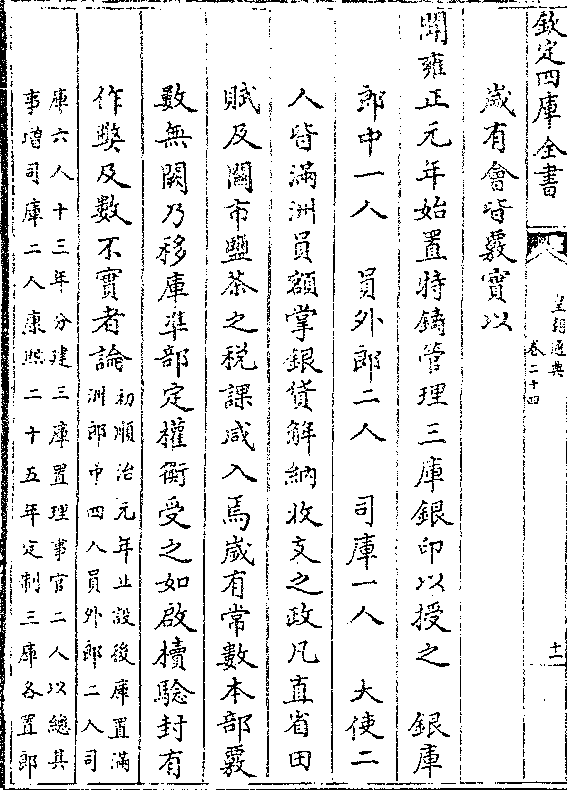 欽定四庫全書
皇朝通典
卷二十四
十一
歲有會皆覈實以
聞雍正元年始置特鑄管理三庫銀印以授之 銀庫
郎中一人 員外郎二人 司庫一人 大使二
人皆滿洲員額掌銀貨解納收支之政凡直省田
賦及關市鹽茶之税課咸入焉歲有常數本部覈
數無闕乃移庫準部定權衡受之如啟櫝驗封有
作獘及數不實者論初順治元年止設後庫置滿
洲郎中四人員外郎二人司
庫六人十三年分建三庫置理事官二人以總其
事增司庫二人康熙二十五年定制三庫各置郎